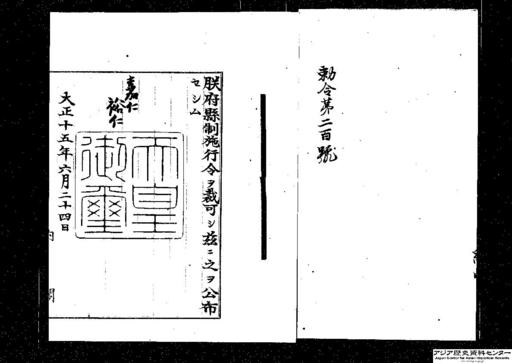 勅令第二百號
朕府縣制施行令ヲ裁可シ茲ニ之ヲ公布
セシム
嘉仁
裕仁
天皇
御璽
大正十五年六月二十四日
内閣
アジア歴史資料センター
Japan Center for Asian Historical Records